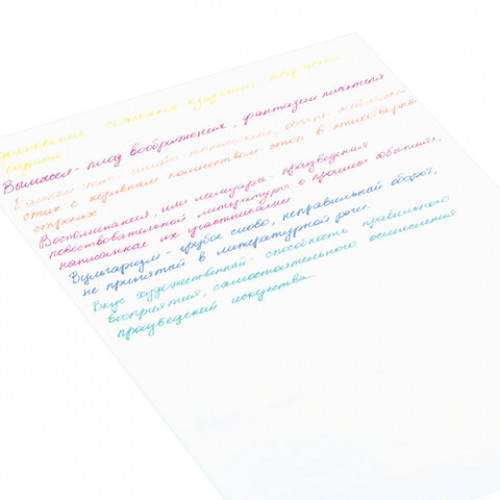 Вымысел - плод воображения, фантазии писателя
стих с неравным количеством стоп в стихотворных
строках
Воспоминания, или мемуары - произведения
повествовательной литературы о прошлых событиях,
написанное их участниками.
Вульгаризм - грубое слово, неправильный оборот,
не принятый в литературной речи.
Вкус художественный - способность правильного
восприятия, самостоятельного осмысления
произведений искусства...